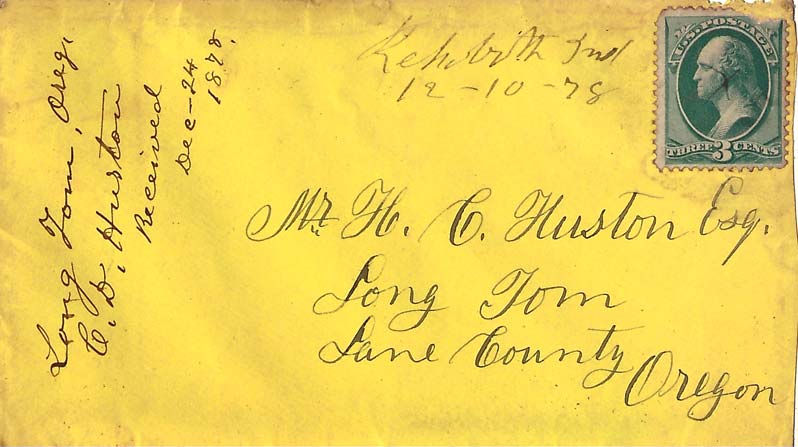 Long Tom, Oreg.
C. D. Huston
Received
Dec-24
1878.
Rehoboth Ind
12-10-78
U.S. POSTAGE
THREE 3 CENTS
Mr. H. C. Huston Esq.
Long Tom
Lane County
Oregon